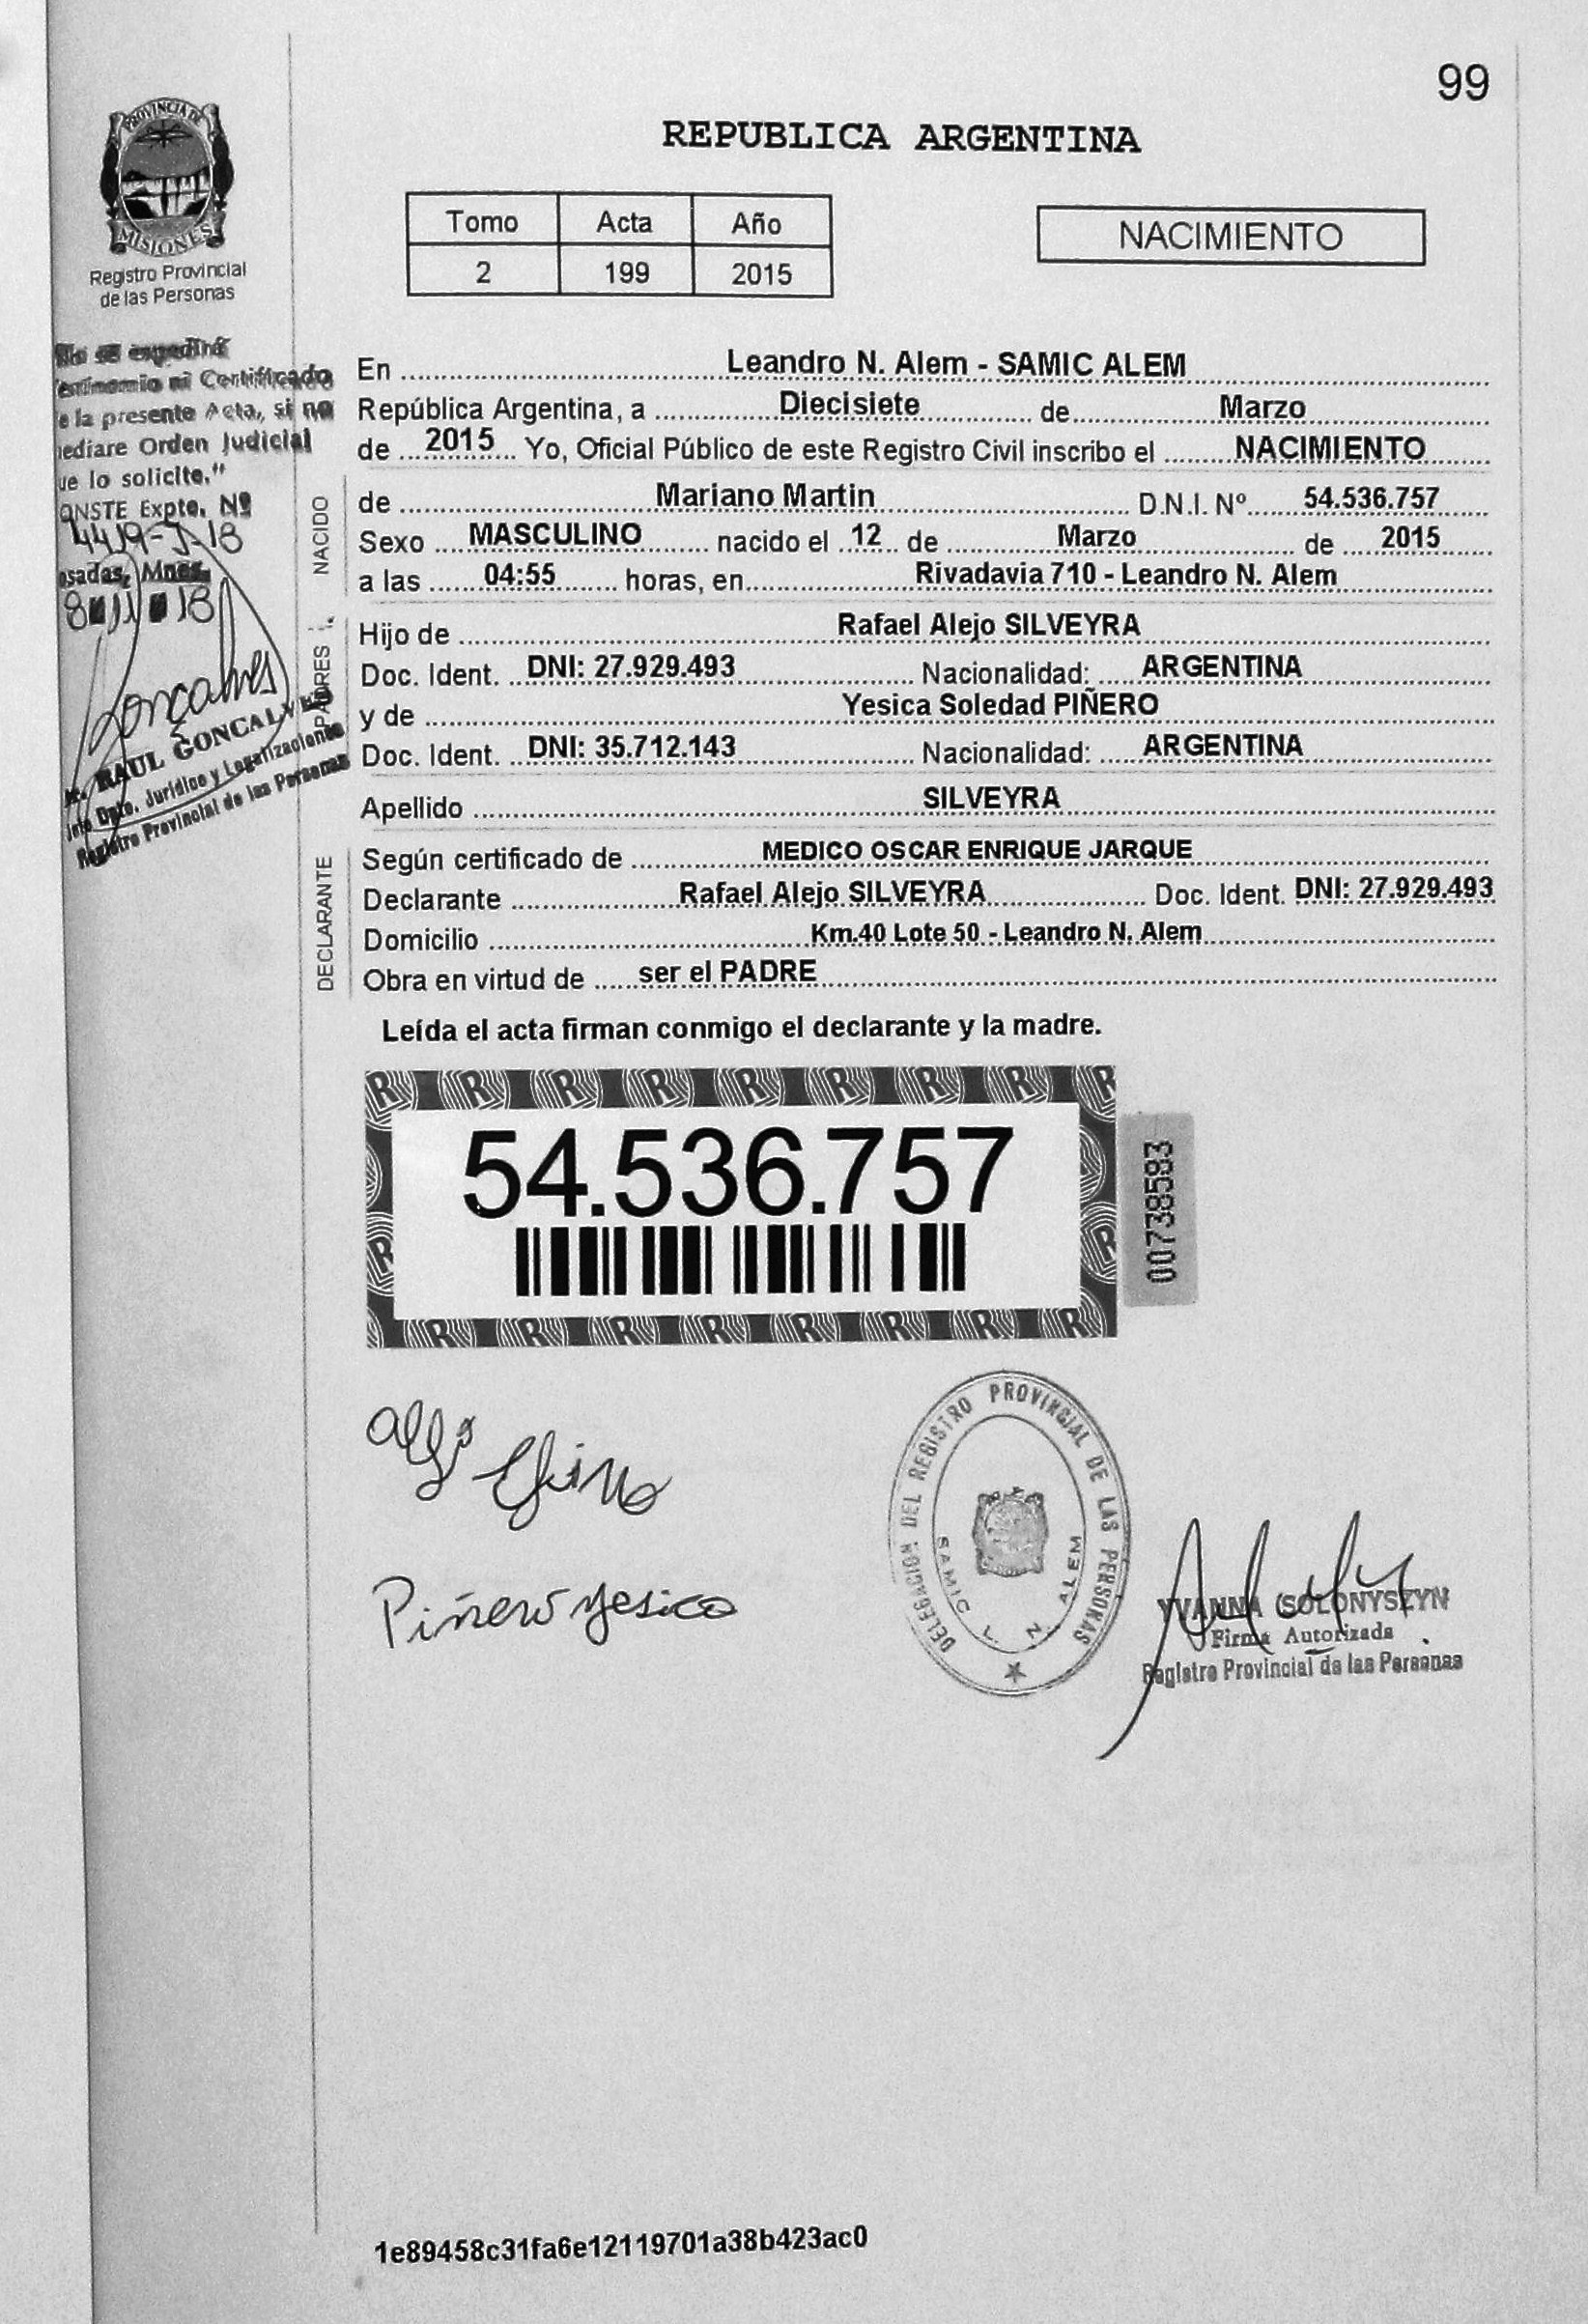 99
REPUBLICA ARGENTINA
PROVINCIA DE
MISIONES
Registro Provincial
de las Personas
Tomo Acta Año
2 199 2015
NACIMIENTO
No se expedirá
estimonio ni Certificado
e la presente Acta, si no
ediare Orden Judicial
ue lo solicite."
ONSTE Expte. Nº
osadas, Mnes.
RAUL GONCALVES
Dpto. Jurídico y Legalizaciones
Registro Provincial de las Personas
En Leandro N. Alem - SAMIC ALEM
República Argentina, a Diecisiete de Marzo
de 2015 Yo, Oficial Público de este Registro Civil inscribo el NACIMIENTO
NACIDO
de Mariano Martin D.N.I. Nº 54.536.757
Sexo MASCULINO nacido el 12 de Marzo de 2015
a las 04:55 horas, en Rivadavia 710 - Leandro N. Alem
PADRES
Hijo de Rafael Alejo SILVEYRA
Doc. Ident. DNI: 27.929.493 Nacionalidad: ARGENTINA
y de Yesica Soledad PIÑERO
Doc. Ident. DNI: 35.712.143 Nacionalidad: ARGENTINA
Apellido SILVEYRA
DECLARANTE
Según certificado de MEDICO OSCAR ENRIQUE JARQUE
Declarante Rafael Alejo SILVEYRA Doc. Ident. DNI: 27.929.493
Domicilio Km.40 Lote 50 - Leandro N. Alem
Obra en virtud de ser el PADRE
Leída el acta firman conmigo el declarante y la madre.
54.536.757
00738583
Piñero Yesica
DELEGACION DEL REGISTRO PROVINCIAL DE LAS PERSONAS
SAMIC L. N. ALEM
YVANNA SOLONYSZYN
Firma Autorizada
Registro Provincial de las Personas
1e89458c31fa6e12119701a38b423ac0